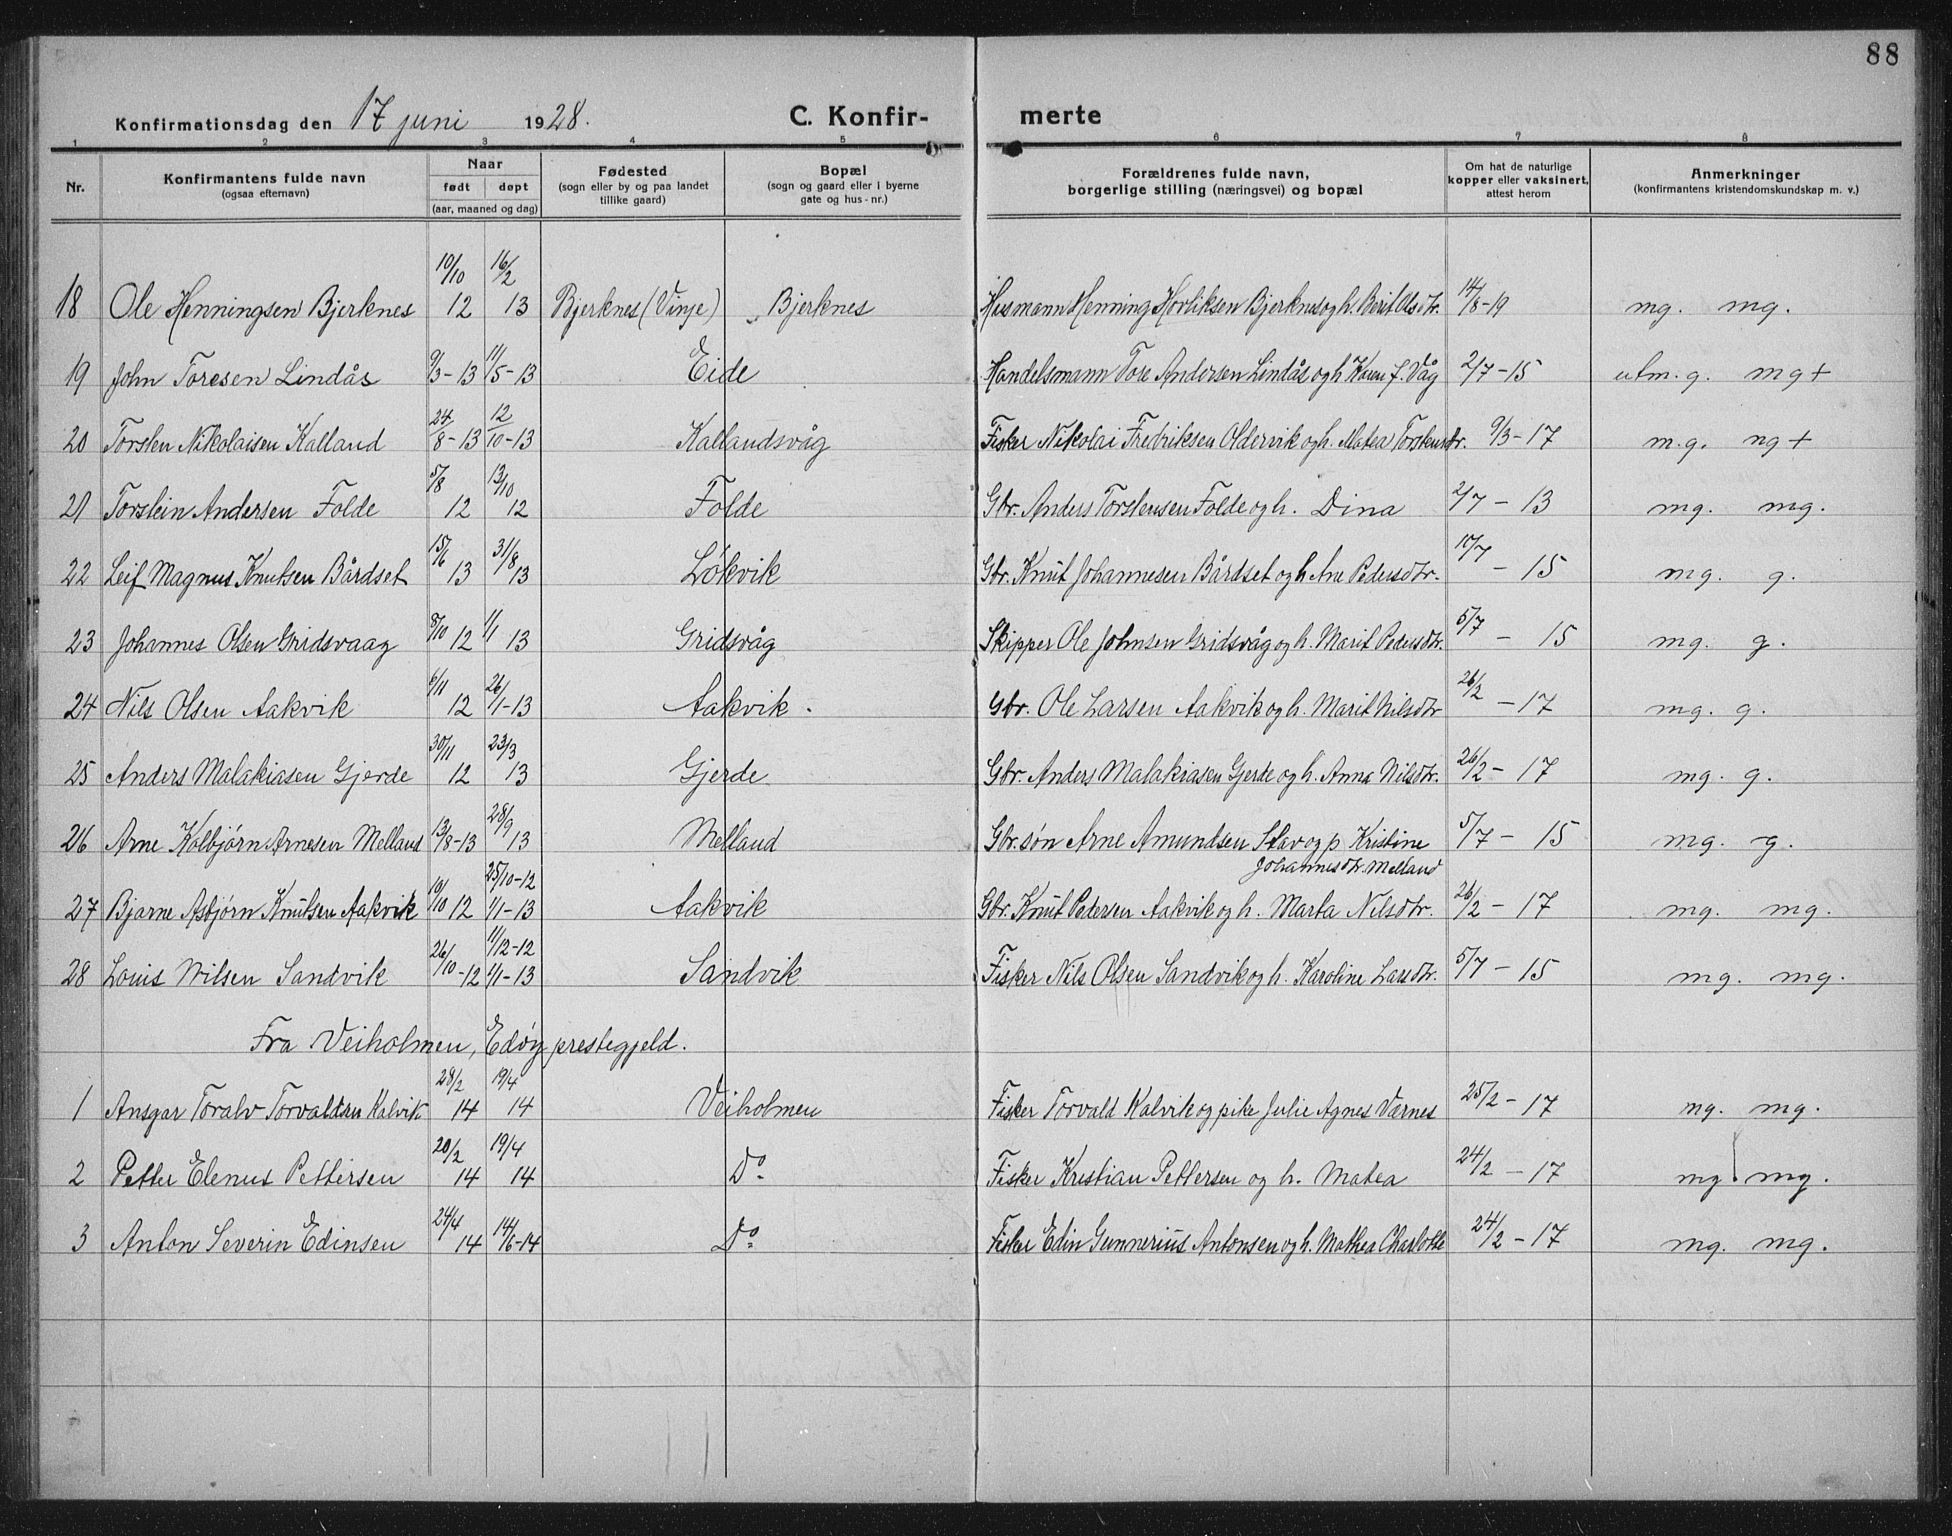 88
Konfirmationsdag den 17 juni 1928. C. Konfir- merte
1 2 3 4 5 6 7 8
Nr. Konfirmantens fulde navn (ogsaa efternavn) Naar født døpt (aar, maaned og dag) Fødested (sogn eller by og paa landet tillike gaard) Bopæl (sogn og gaard eller i byerne gate og hus-nr.) Forældrenes fulde navn, borgerlige stilling (næringsvei) og bopæl Om hat de naturlige kopper eller vaksinert, attest herom Anmerkninger (konfirmantens kristendomskundskap m. v.)
18 Ole Henningsen Bjerknes 10/10 12 16/2 13 Bjerknes (Vinje) Bjerknes Husmann Henning Hovliksen Bjerknes og h. Berit Olsdtr. 14/8-19 mg. mg.
19 John Toresen Lindås 9/3-13 11/5-13 Eide Handelsmann Tore Andersen Lindås og h Karen f. Våg 2/7-15 utm.g. mg+
20 Torsten Nikolaisen Kalland 24/8-13 12/10-13 Kallandsvåg Fisker Nikolai Fredriksen Oldervik og h. Matea Torstensdr. 9/3-17 m.g. ng+
21 Torstein Andersen Folde 5/8 12 13/10 12 Folde Gbr. Anders Torstensen Folde og h. Dina 2/7-13 mg. mg.
22 Leif Magnus Knutsen Bårdset 15/6 13 31/8 13 Løkvik Gbr. Knut Johannesen Bårdset og h Ane Pedersdtr. 17/7-15 mg. g.
23 Johannes Olsen Gridsvaag 8/10 12 1/1 13 Gridsvåg Skipper Ole Johnsen Gridsvåg og h. Marit Pedersdtr. 5/7-15 mg. g.
24 Nils Olsen Aakvik 6/11 12 26/1-13 Aakvik. Gbr. Ole Larsen Aakvik og h. Marit Nilsdtr 26/2-17 mg. g.
25 Anders Malakiasen Gjerde 30/11 12 23/3 13 Gjerde Gbr. Anders Malakiasen Gjerde og h. Anna Nilsdtr. 26/2-17 mg. g.
26 Arne Kolbjørn Arnesen Melland 13/8-13 28/9 13 Melland Gbr.søn Arne Amundsen Stav og p. Kristine 5/7-15 mg. g.
Johannesdtr. Melland
27 Bjarne Asbjørn Knutsen Aakvik 10/10 12 25/10-12 1/1-13 Aakvik Gbr. Knut Pedersen Aakvik og h. Marta Nilsdtr. 26/2-17 mg. mg.
28 Louis Nilsen Sandvik 26/10-12 11/12-12 1/1-13 Sandvik Fisker Nils Olsen Sandvik og h. Karoline Larsdtr. 5/7-15 mg. mg.
Fra Veiholmen, Edøy prestegjeld.
1 Ansgar Toralv Torvaldsen Kalvik 28/2 14 19/4 14 Veiholmen Fisker Torvald Kalvik og pike Julie Agnes Værnes 25/2-17 mg. mg.
2 Petter Elenus Pettersen 20/2 14 19/4 14 Do. Fisker Kristian Pettersen og h. Matea 24/2-17 mg. mg.
3 Anton Severin Edinsen 24/4 14 14/6-14 Do. Fisker Edin Gunnerius Antonsen og h. Mathea Charlotte 24/2-17 mg. mg.